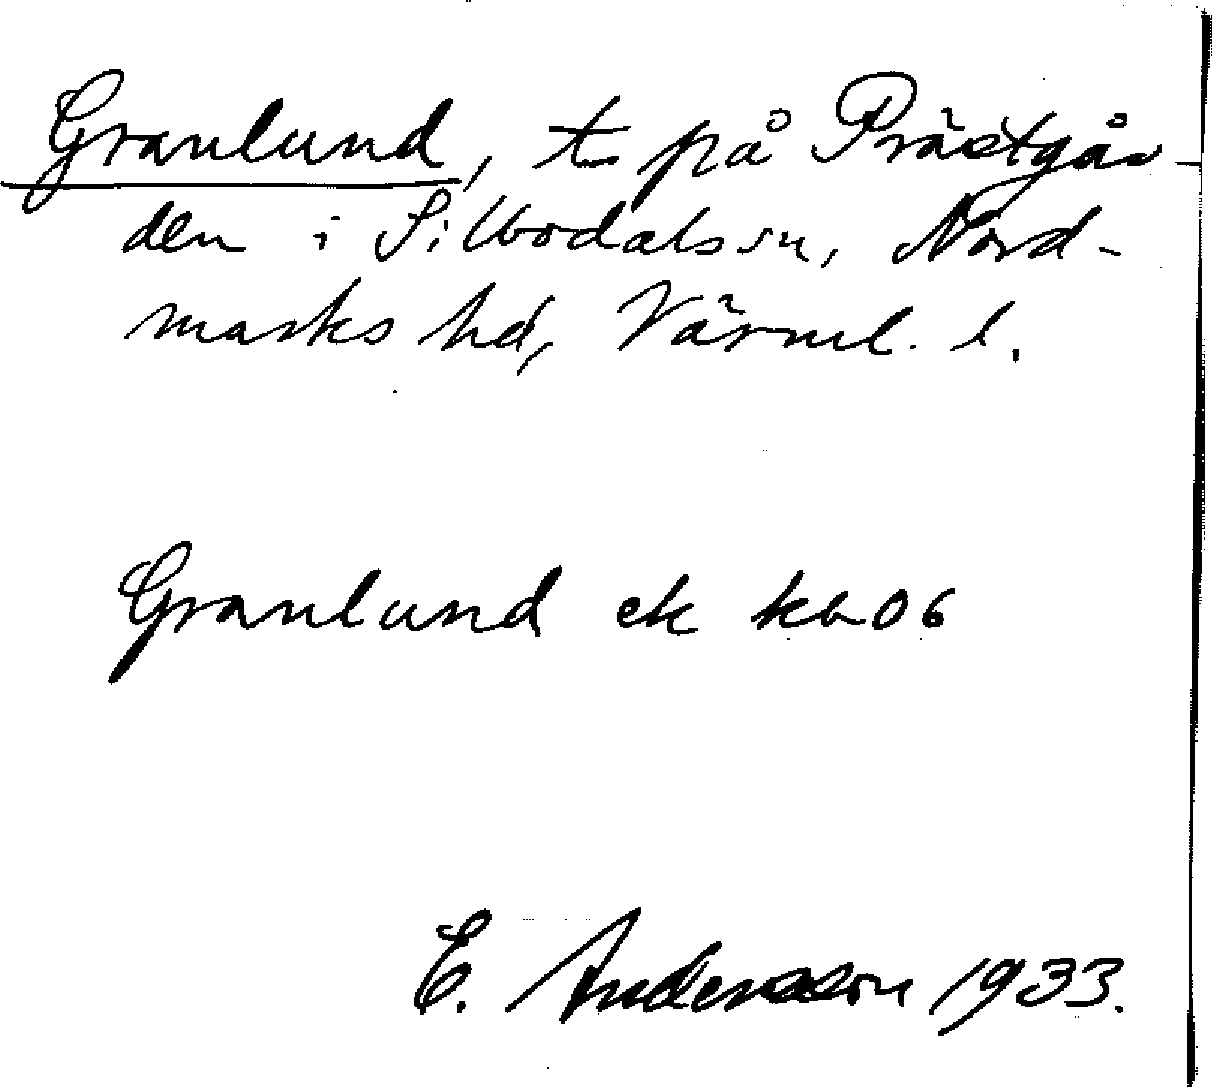 Granlund, t. på Prästgår-
den i Silbodals sn, Nord-
marks hd, Värml. l.
Granlund ek kb 06
E. Andersson 1933.